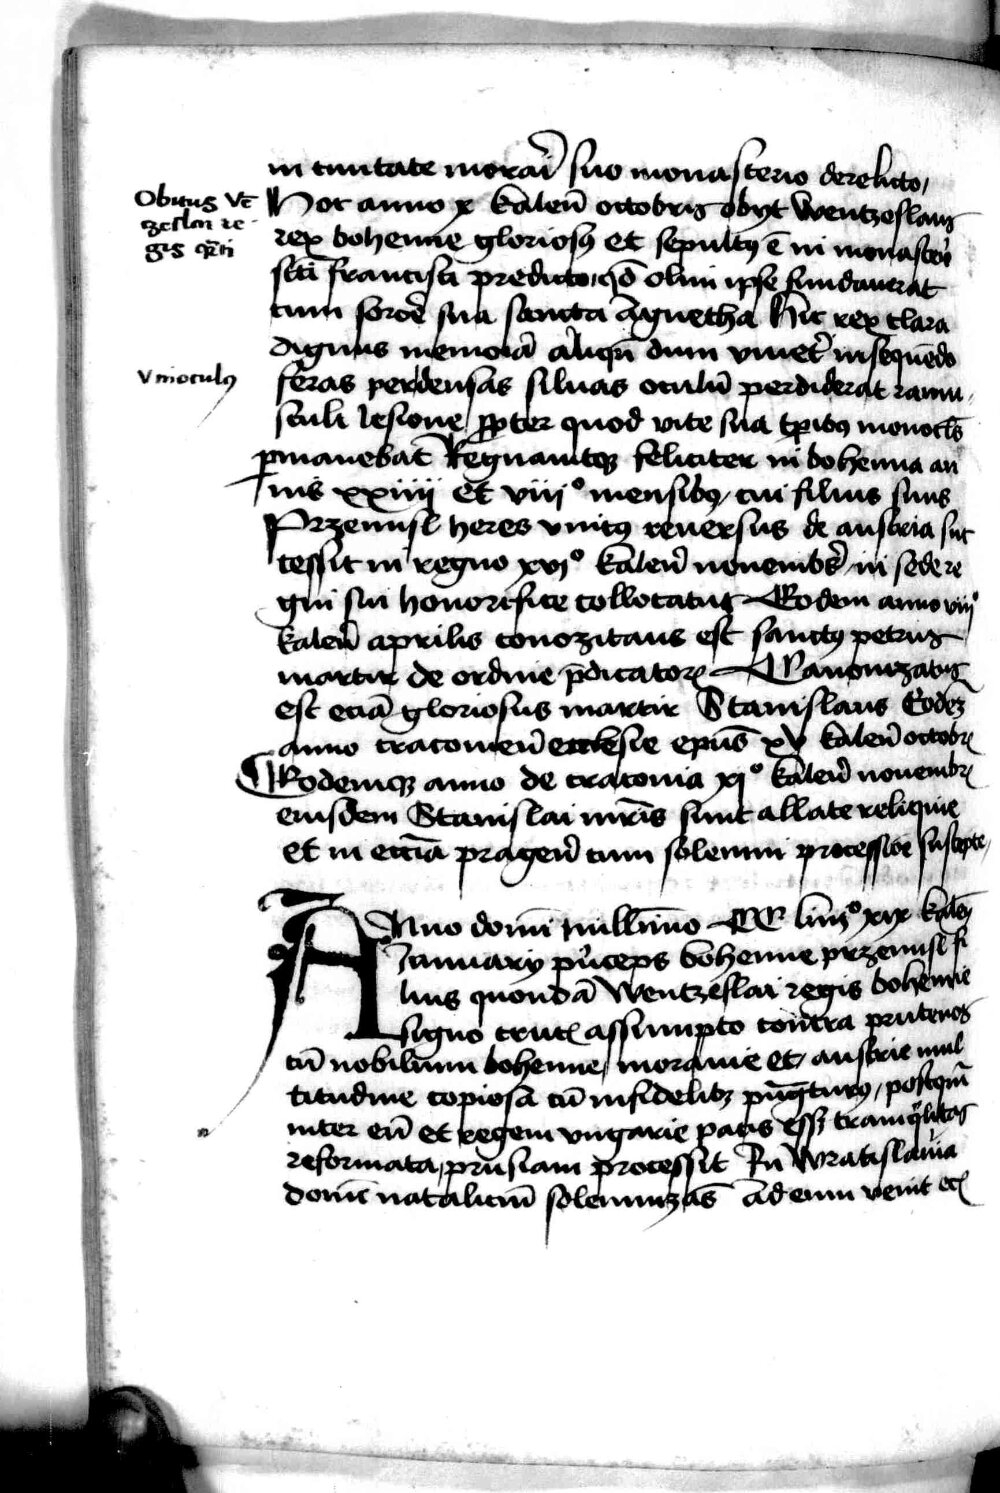 in ciuitate morau̅ suo monasterio derelicto,
Obitus Ve̅
zeslai re
gis q̅rti
Hoc anno x kalen̅ octobris obyt Wentzeslaus
rex bohemie gloriosus et sepultus e̅ in monasterı̅
sc̅ti francisci predicto, qd̅ olim ipse fundauerat
cum sorore̅ sua sancta Agnetha Hic rex clara
dignus memoria̅ aliqn̅ dum viueret̅ inseque̅do
Vnioculus
feras perdensas siluas oculu̅ perdiderat ramu,
sculi lesione, propter quod vite sua t̅pibus monocl̅s
pmanebat̅ Regnauitque feliciter in bohemia an
nis xxiiii et viii° mensibus, cui filius suus
Przemisl heres vnicus reuersus de austria suc
cessit in regno xvi° kalen̅ nouembr̅ in sede re
gni sui honorifice collocatus Eodem anno viii°
kalen̅ aprilis conozitaus est sanctus petrus
martir de ordine p̅dicator̅ Canonizatus
est ecia̅ gloriosus martir Stanislaus Eodez̅
anno cracouien̅ ecclesie ep̅us xv kalen̅ octobr̅
Eodemque anno de cracouia xi° kalen̅ nouembr̅
eiusdem Stanislai mr̅is sunt allate reliquie
et in ecc̅ia̅ pragen̅ cum solemni processio̅e suscepte,
Anno domı̅ mill̅imo CC liiii° xix kalen̅
January pri̅ceps bohemie przemisl fi
lius quonda̅ Wentzeslai regis bohemie
signo cruc̅ assumpto contra prutenos
cu̅ nobilium bohemie, morauie et, austrie mul
titudine copiosa̅ cu̅ infidelibz pu̅gturus, postqm̅
inter eu̅ et regem vngarie pacis ess̅ tranq̅litas
reformata, prusiam processit In Wratislauia
domı̅c natalicium̅ solemnizas̅ Ad eum venit ec̅